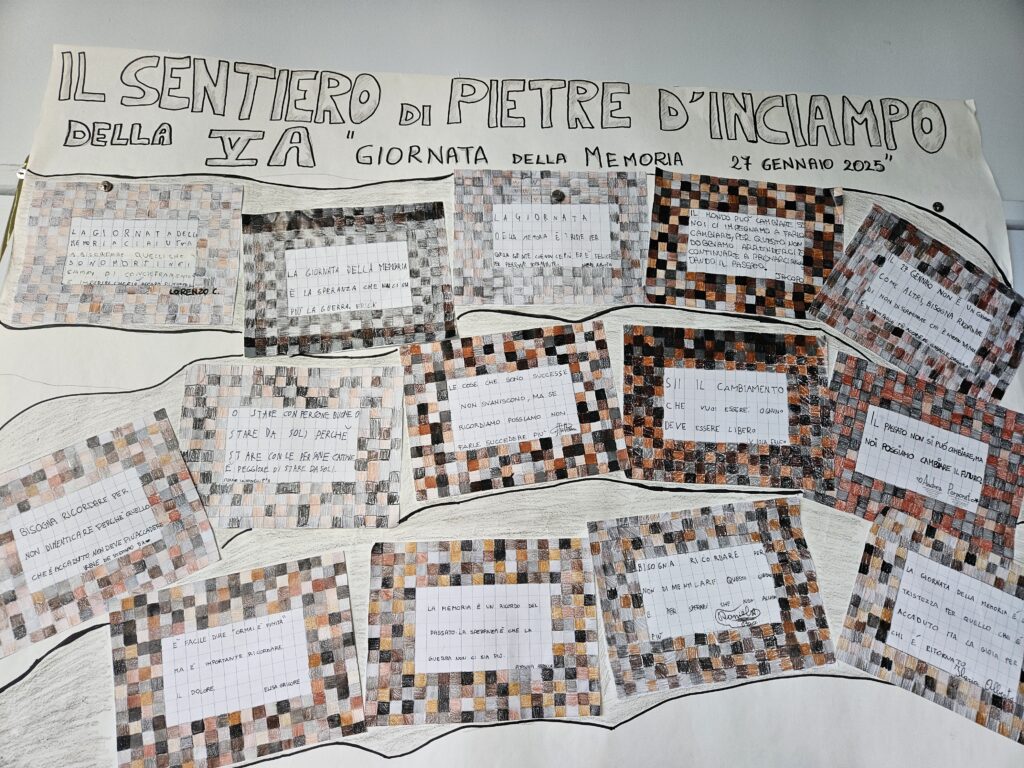 IL SENTIERO DI PIETRE D'INCIAMPO
DELLA VA "GIORNATA DELLA MEMORIA 27 GENNAIO 2025"
LA GIORNATA DELLA
MEMORIA CI AIUTA
A RICORDARE QUELLI CHE
SONO MORTI NEI
CAMPI DI CONCENTRAMENTO
LORENZO C.
LA GIORNATA DELLA MEMORIA
E LA SPERANZA CHE NON CI SIA
PIÙ LA GUERRA.
LA GIORNATA
DELLA MEMORIA È TRISTE PER
IL MONDO PUÒ CAMBIARE SE
NOI CI IMPEGNAMO A FARLO
CAMBIARE, PER QUESTO NON
DOBBIAMO ARRENDERCI E
CONTINUARE A PROVARCI RICOR
DANDO IL PASSATO.
JACOPO
IL 27 GENNAIO NON È UN GIORNO
COME ALTRI, BISOGNA RICORDARE
DI NON DISCRIMINARE CHI È
O STARE CON PERSONE BUONE O
STARE DA SOLI PERCHÈ
STARE CON LE PERSONE CATTIVE
È PEGGIO LE DI STARE DA SOLI.
LE COSE CHE SONO SUCCESSE
NON SVANISCONO, MA SE
RICORDIAMO POSSIAMO NON
FARLE SUCCEDERE PIÙ
SII IL CAMBIAMENTO
CHE VUOI ESSERE. OGNUNO
DEVE ESSERE LIBERO
IL PASSATO NON SI PUÒ CAMBIARE, MA
NOI POSSIAMO CAMBIARE IL FUTURO.
BISOGNA RICORDARE PER
NON DIMENTICARE PERCHÈ QUELLO
CHE È ACCADUTO NON DEVE PIÙ ACCADERE
È FACILE DIRE "ORMAI È FINITA"
MA È IMPORTANTE RICORDARE
IL DOLORE.
ELISA
LA MEMORIA È UN RICORDO DEL
PASSATO LA SPERANZA È CHE LA
GUERRA NON CI SIA PIÙ.
BISOGNIA RICORDARE PER
NON DIMENTICARE QUESTI GIORNI
E PER SPERARE CHE NON ACCADA
PIÙ
LA GIORNATA DELLA MEMORIA È
TRISTEZZA PER QUELLO CHE È
ACCADUTO MA LA GIOIA PER
CHI È RITORNATO